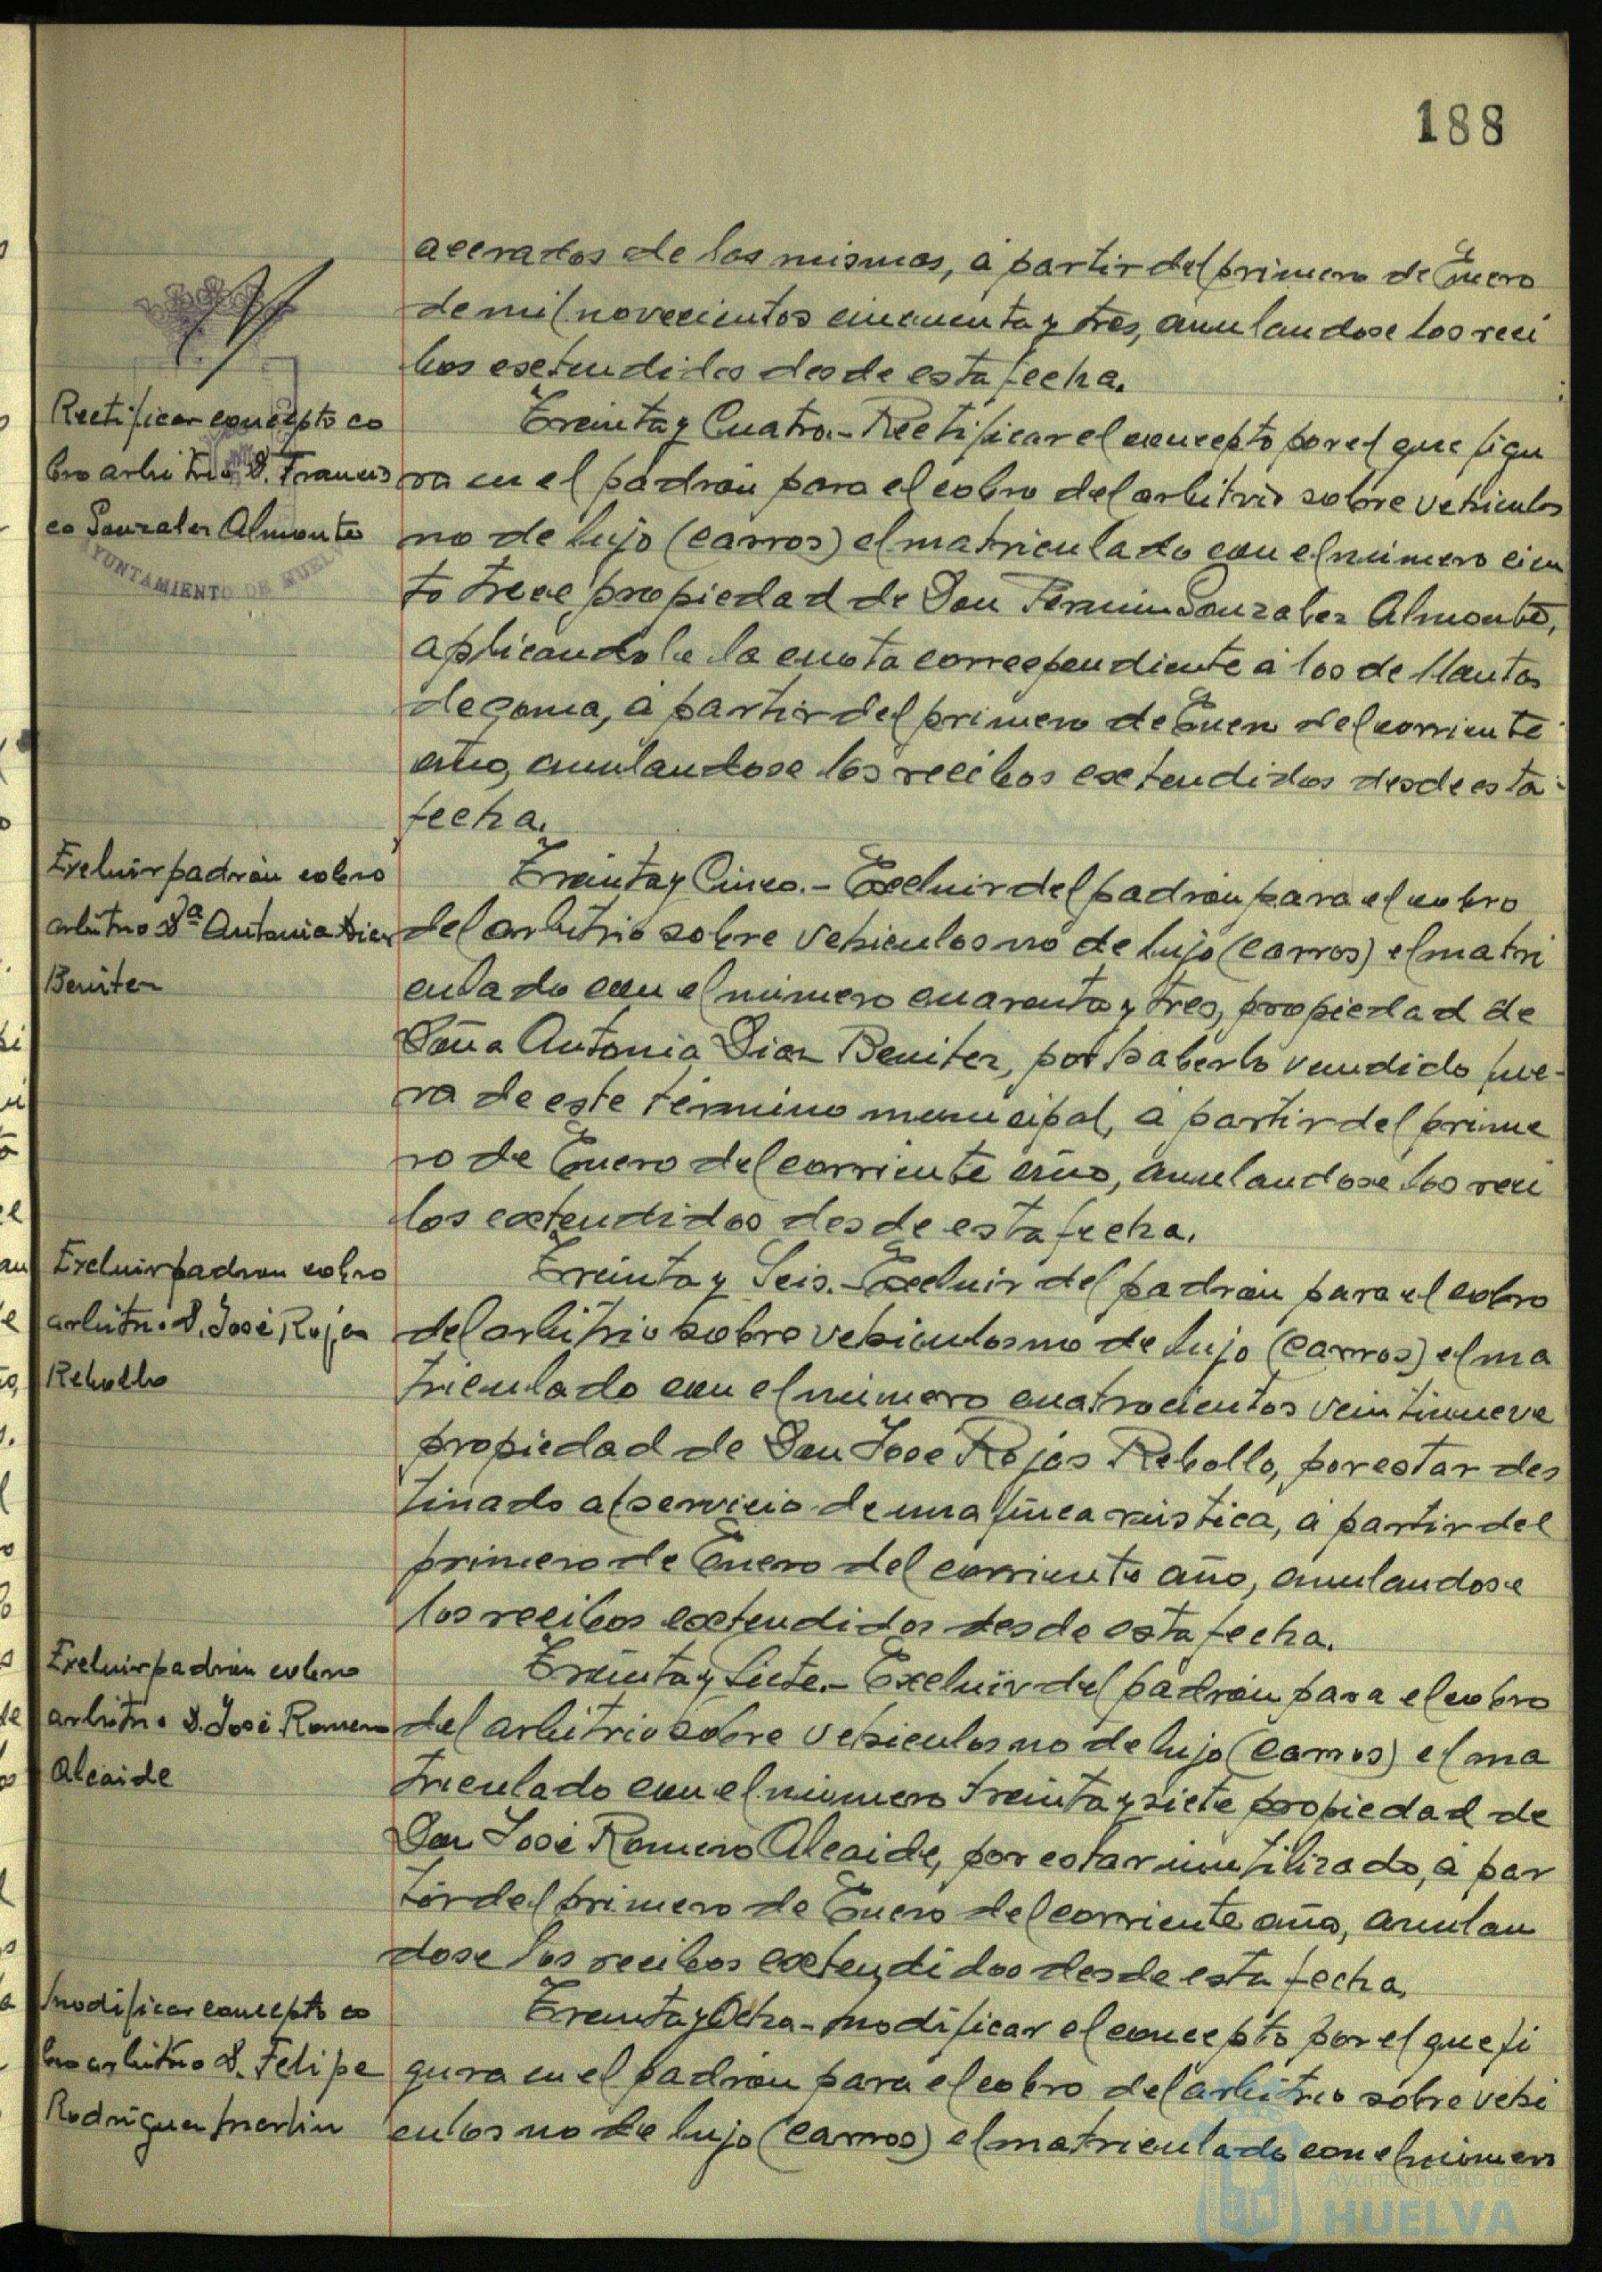 188
acerados de las mismas, á partir del primero de Enero
de mil novecientos cincuenta y tres, anulandose los reci
bos extendidos desde esta fecha.
Rectificar concepto co
bro arbitrio D. Francis
co Gonzalez Almonte
AYUNTAMIENTO DE HUELVA
Treinta y Cuatro.- Rectificar el concepto por el que figu
ra en el padrón para el cobro del arbitrio sobre vehiculos
no de lujo (carros) el matriculado con el número cien
to trece propiedad de Don Fermin Gonzalez Almonte,
aplicandole la cuota correspondiente á los de llantas
de goma, á partir del primero de Enero del corriente
año, anulandose los recibos extendidos desde esta
fecha.
Excluir padrón cobro
arbitrio Dª Antonia Diaz
Benitez
Treinta y Cinco.- Excluir del padrón para el cobro
del arbitrio sobre vehiculos no de lujo (carros) el matri
culado con el número cuarenta y tres, propiedad de
Doña Antonia Diaz Benitez, por haberlo vendido fue-
ra de este término municipal, á partir del prime
ro de Enero del corriente año, anulandose los reci
bos extendidos desde esta fecha.
Excluir padron cobro
arbitrio D. José Rojas
Rebollo
Treinta y Seis.- Excluir del padrón para el cobro
del arbitrio sobre vehiculos no de lujo (carros) el ma
triculado con el número cuatrocientos veintinueve
propiedad de Don Jose Rojas Rebollo, por estar des
tinado al servicio de una finca rústica, á partir del
primero de Enero del corriente año, anulandose
los recibos extendidos desde esta fecha.
Excluir padrón cobro
arbitrio D. José Romero
Alcaide
Treinta y Siete.- Excluir del padrón para el cobro
del arbitrio sobre vehiculos no de lujo (carros) el ma
triculado con el número treinta y siete propiedad de
Don José Romero Alcaide, por estar inutilizado, á par
tir del primero de Enero del corriente año, anulan
dose los recibos extendidos desde esta fecha.
Modificar concepto co
bro arbitrio D. Felipe
Rodriguez Martin
Treinta y Ocho- Modificar el concepto por el que fi
gura en el padrón para el cobro del arbitrio sobre vehi
culos no de lujo (carros) el matriculado con el número
Ayuntamiento de
HUELVA